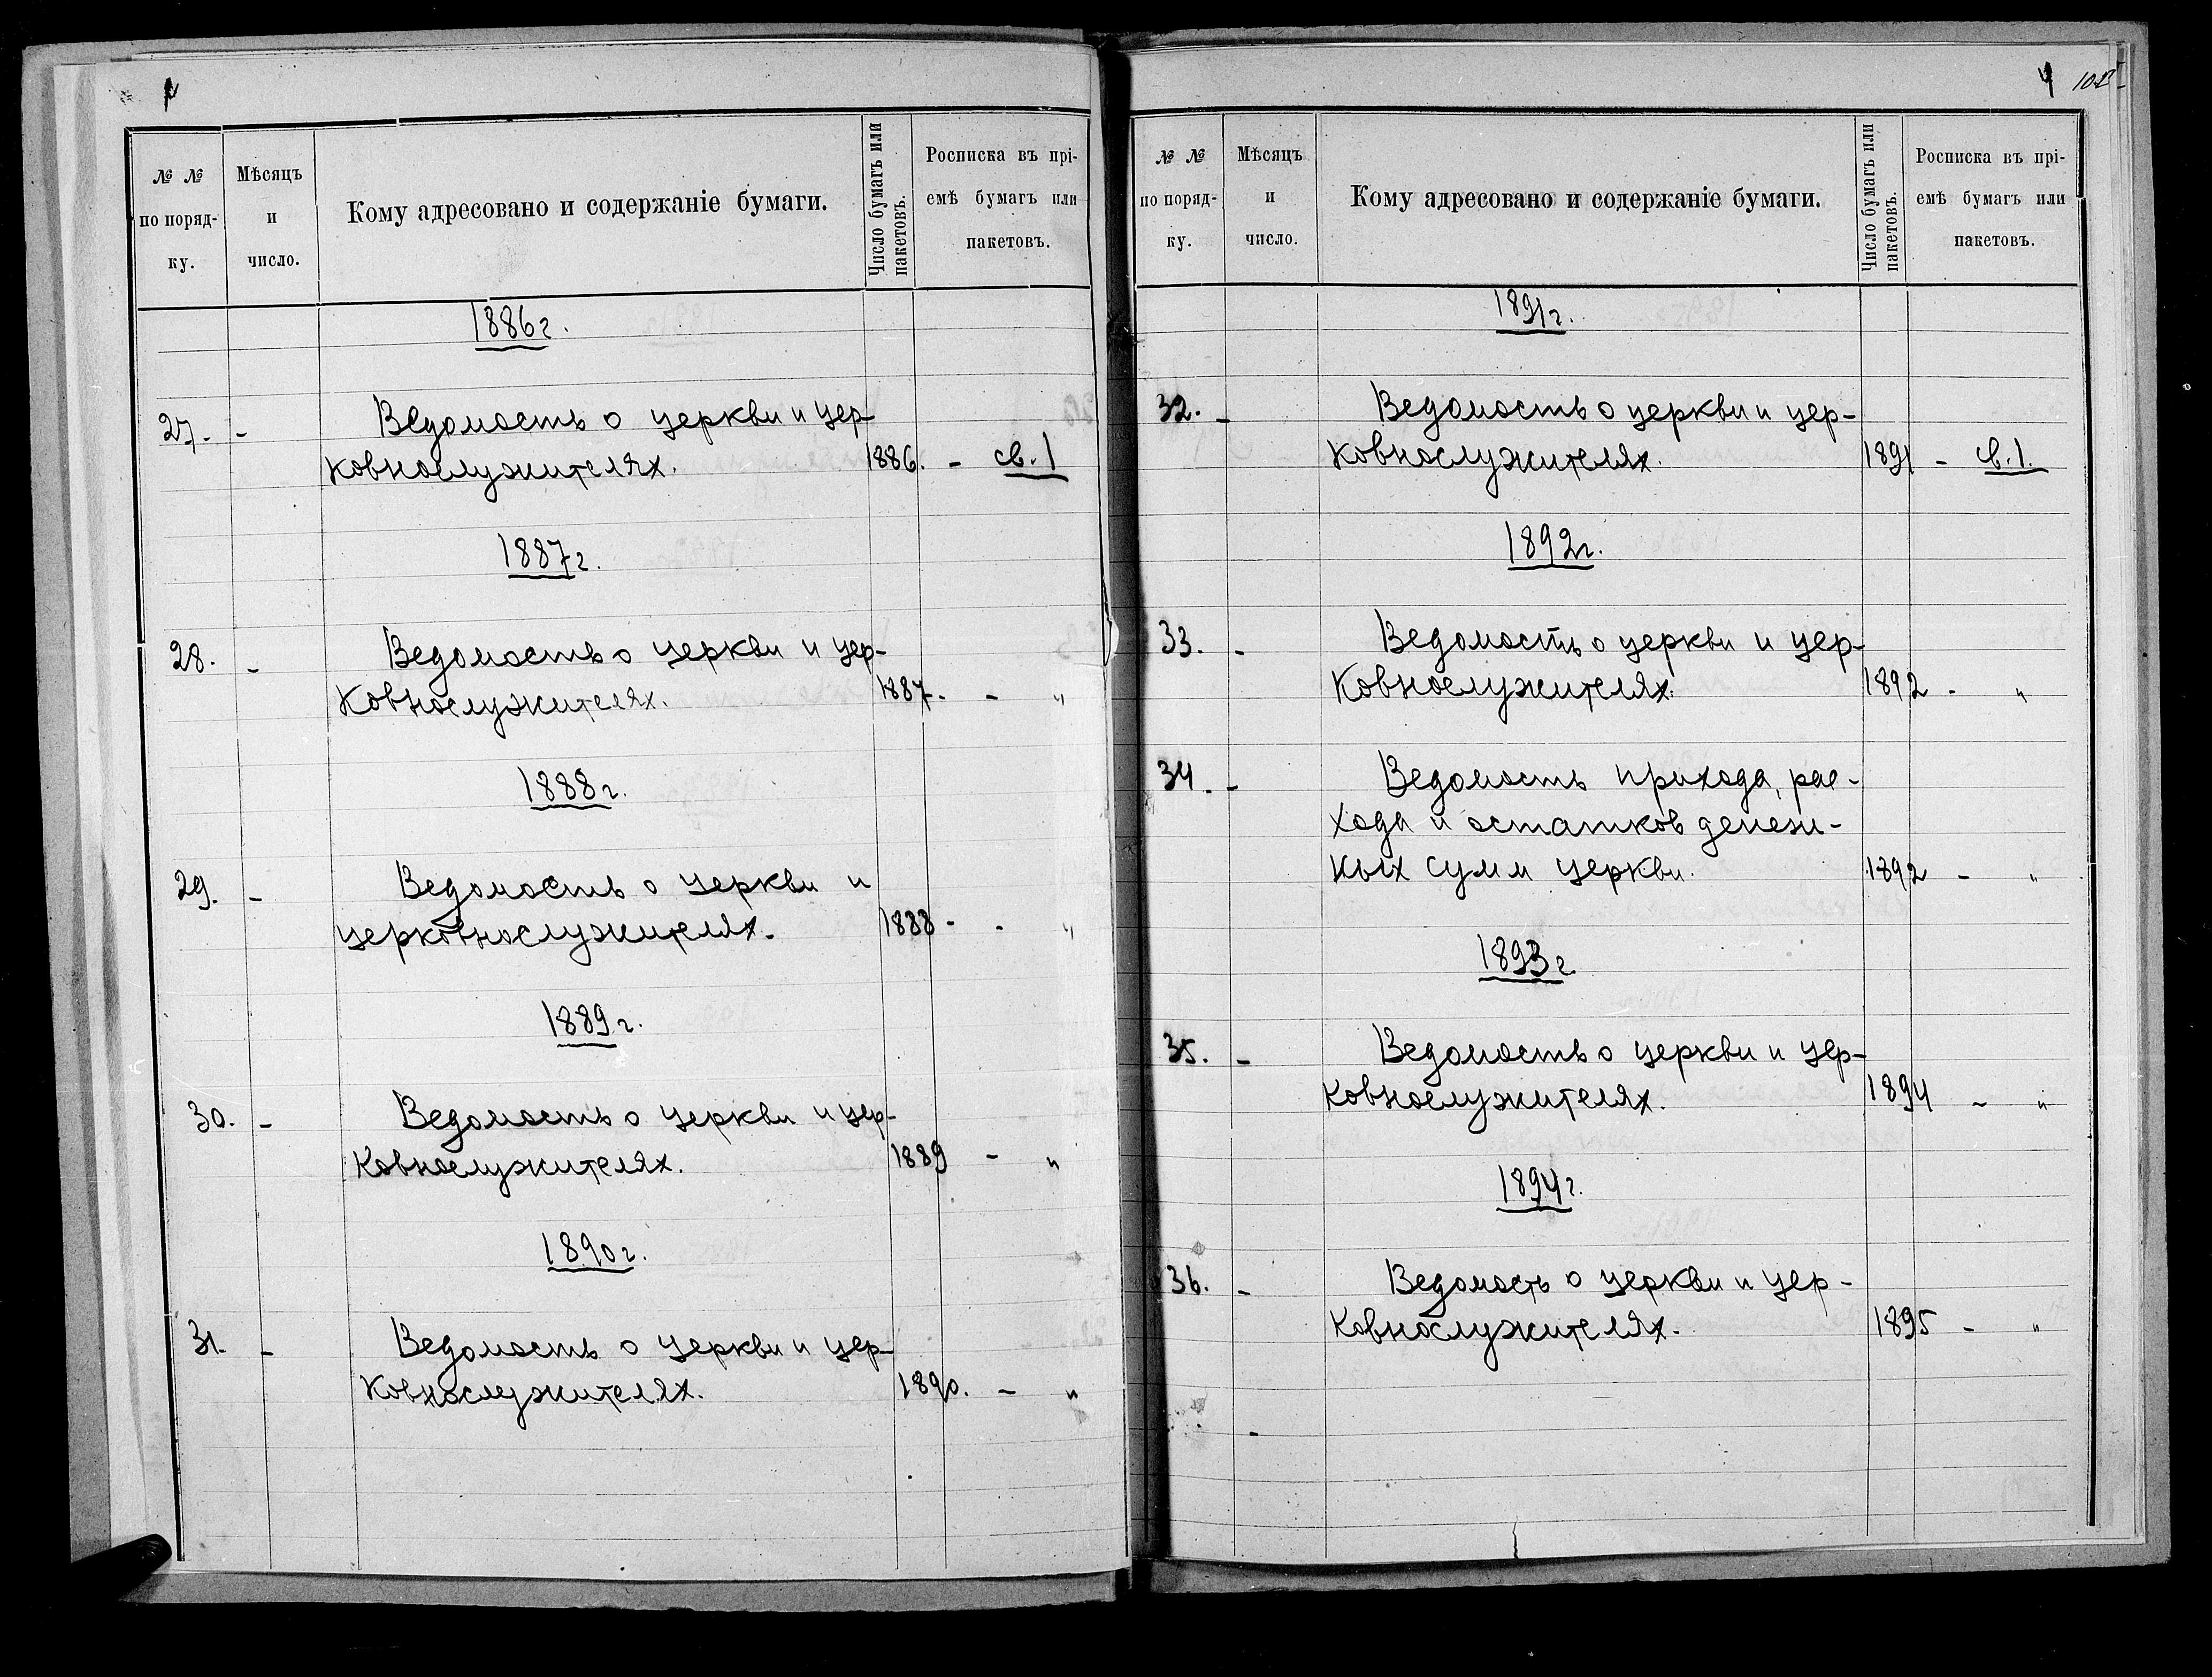 № №
по поряд-
ку.
Мѣсяцъ
и
число.
Кому адресовано и содержаніе бумаги.
Число бумагъ или
пакетовъ.
Росписка въ прі-
емѣ бумагъ или
пакетовъ.
1886г.
27. - Ведомость о церкви и цер-
ковнослужителях. 1886. - св. 1
1887г.
28. - Ведомость о церкви и цер-
ковнослужителях. 1887. - "
1888г.
29. - Ведомость о церкви и
церковнослужителях. 1888 - "
1889г.
30. - Ведомость о церкви и цер-
ковнослужителях. 1889 - "
1890г.
31. - Ведомость о церкви и цер-
ковнослужителях. 1890. - "
4 102
№ №
по поряд-
ку.
Мѣсяцъ
и
число.
Кому адресовано и содержаніе бумаги.
Число бумагъ или
пакетовъ.
Росписка въ прі-
емѣ бумагъ или
пакетовъ.
1891г.
32. - Ведомость о церкви и цер-
ковнослужителях. 1891 - св. 1.
1892г.
33. - Ведомость о церкви и цер-
ковнослужителях. 1892 - "
34. - Ведомость прихода, рас-
хода и остатков денеж-
ных сумм церкви. 1892 - "
1893г.
35. - Ведомость о церкви и цер-
ковнослужителях. 1894 - "
1894г.
36. - Ведомость о церкви и цер-
ковнослужителях. 1895 - "